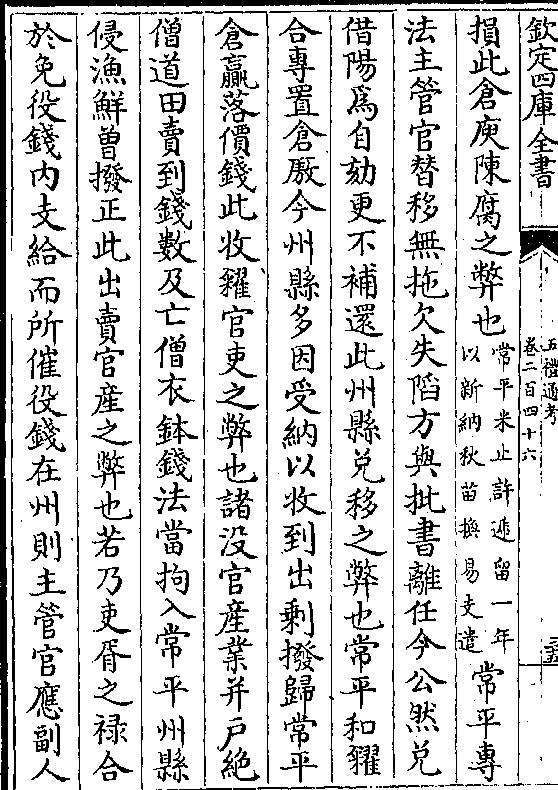 欽定四庫全書
五禮通考
卷二百四十六
三五
損此倉庾陳腐之弊也常平米止許遞留一年以新納秋苗換易支遣常平専
法主管官替移無拖欠失陷方與批書離任今公然兌
借陽為自劾更不補還此州縣兌移之弊也常平和糴
合專置倉厫今州縣多因受納以收到出剰撥歸常平
倉贏落價錢此收糴官吏之弊也諸没官産業并戸絶
僧道田賣到錢數及亡僧衣鉢錢法當拘入常平州縣
侵漁鮮曽撥正此出賣官産之弊也若乃吏胥之禄合
於免役錢内支給而所催役錢在州則主管官應副人